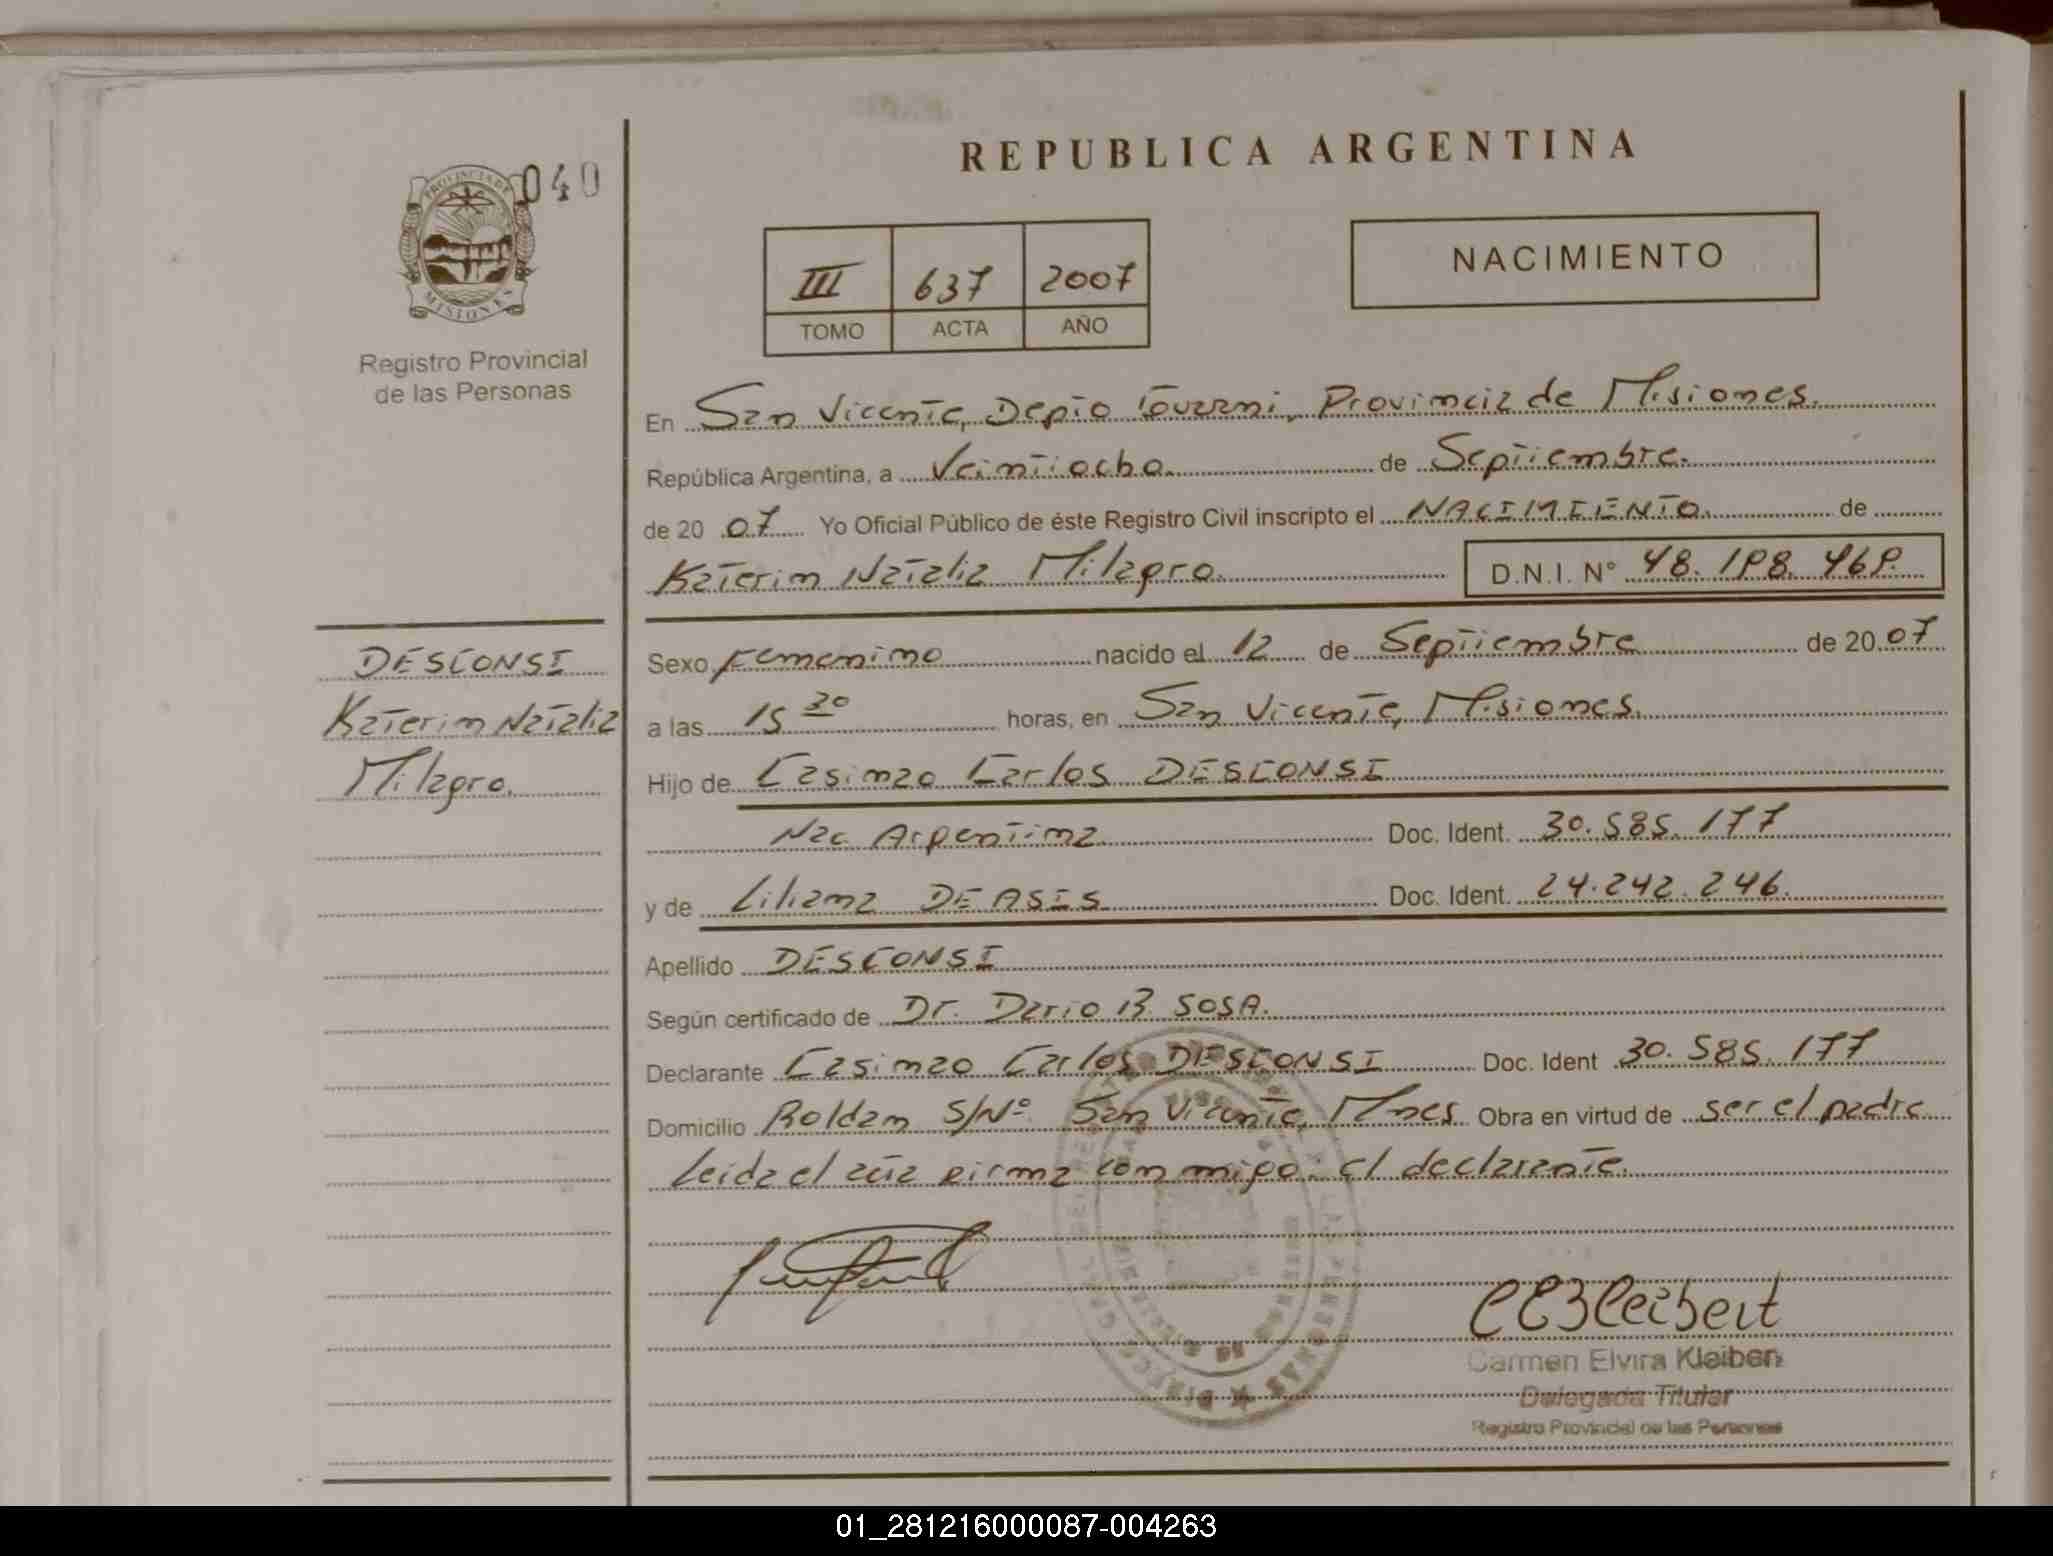 040
PROVINCIA DE
MISIONES
Registro Provincial
de las Personas
REPUBLICA ARGENTINA
III 637 2007
TOMO ACTA AÑO
NACIMIENTO
En San Vicente, Depto Guarani, Provincia de Misiones.
República Argentina, a Veintiocho de Septiembre.
de 20 07 Yo Oficial Público de éste Registro Civil inscripto el NACIMIENTO de
Katerin Natalia Milagro. D.N.I. Nº 48.198.469.
DESCONSI
Katerin Natalia
Milagro.
Sexo Femenino nacido el 12 de Septiembre de 20 07
a las 15 30 horas, en San Vicente, Misiones.
Hijo de Casimao Carlos DESCONSI
Nac Argentina Doc. Ident. 30.585.177
y de Liliana DE ASIS Doc. Ident. 24.242.246.
Apellido DESCONSI
Según certificado de Dr. Dario B. SOSA.
Declarante Casimao Carlos DESCONSI Doc. Ident 30.585.177
Domicilio Roldan S/Nº San Vicente, Mnes Obra en virtud de ser el padre
Leida el acta firma con migo: el declarante.
CEKleibert
Carmen Elvira Kleibert
Delegada Titular
Registro Provincial de las Personas
01_281216000087-004263